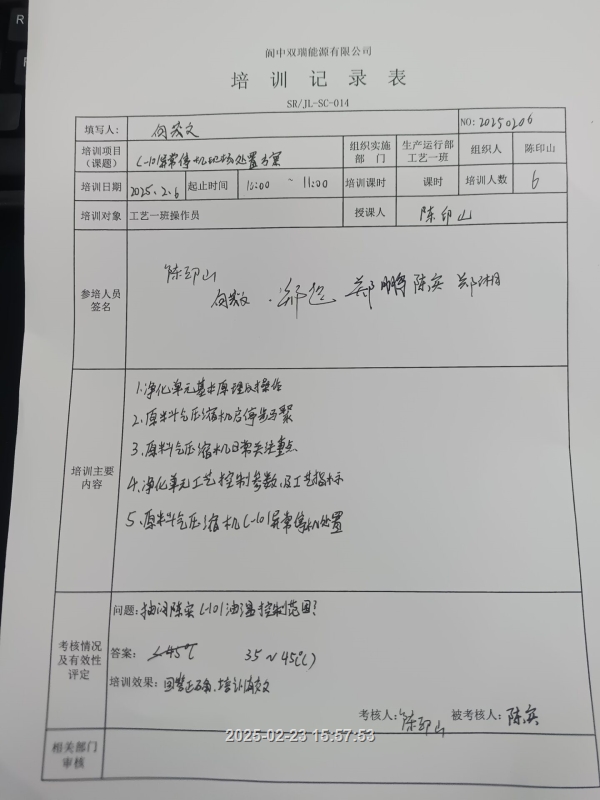 阆中双瑞能源有限公司
培训记录表
SR/JL-SC-014
填写人： 向发文 NO:20250206
培训项目（课题） C-101异常停机的核处置方案 组织实施部门 生产运行部工艺一班 组织人 陈印山
培训日期 2025.2.6 起止时间 10:00 ~ 11:00 培训课时 课时 培训人数 6
培训对象 工艺一班操作员 授课人 陈印山
参培人员签名
陈印山
向发文 郑 郑鹏 陈实 郑湘
培训主要内容
1.净化单元基本原理及操作
2.原料气压缩机启停步骤
3.原料气压缩机日常关注重点
4.净化单元工艺控制参数及工艺指标
5.原料气压缩机C-101异常停机处置
考核情况及有效性评定
问题：抽问陈实C-101油温控制范围？
答案： ≤45℃ 35~45(℃)
培训效果：回答正确，培训有效
考核人：陈印山 被考核人：陈实
相关部门审核
2025-02-23 15:57:53